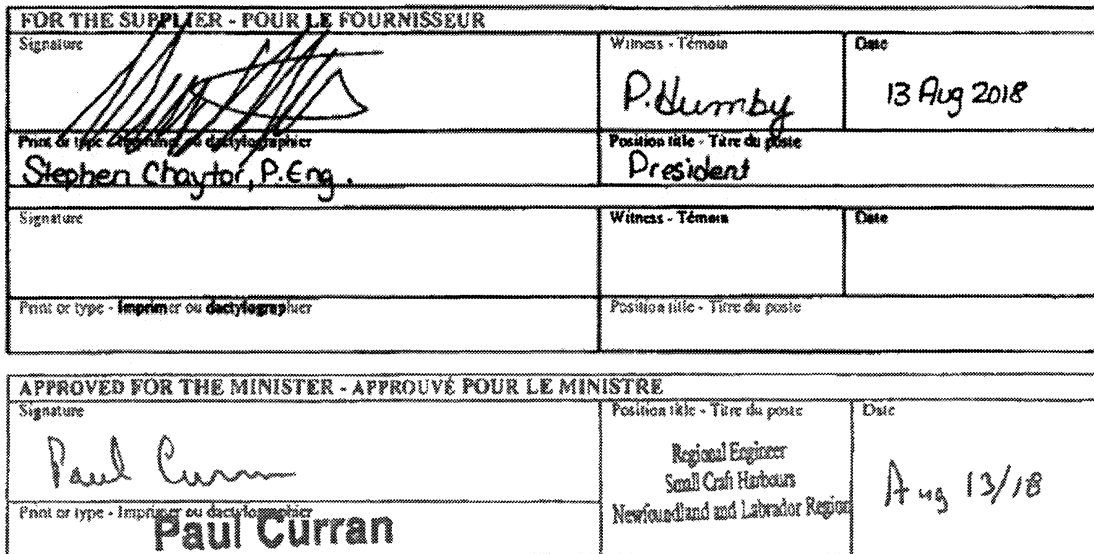 FOR THE SUPPLIER - POUR LE FOURNISSEUR
Signature
Witness - Témoin
Date
P. Humby
13 Aug 2018
Print or type - Imprimer ou dactylographier
Position title - Titre du poste
Stephen Chaytor, P.Eng.
President
Signature
Witness - Témoin
Date
Print or type - Imprimer ou dactylographier
Position title - Titre du poste
APPROVED FOR THE MINISTER - APPROUVÉ POUR LE MINISTRE
Signature
Position title - Titre du poste
Date
Paul Curran
Regional Engineer
Small Craft Harbours
Newfoundland and Labrador Region
Aug 13/18
Print or type - Imprimer ou dactylographier
Paul Curran